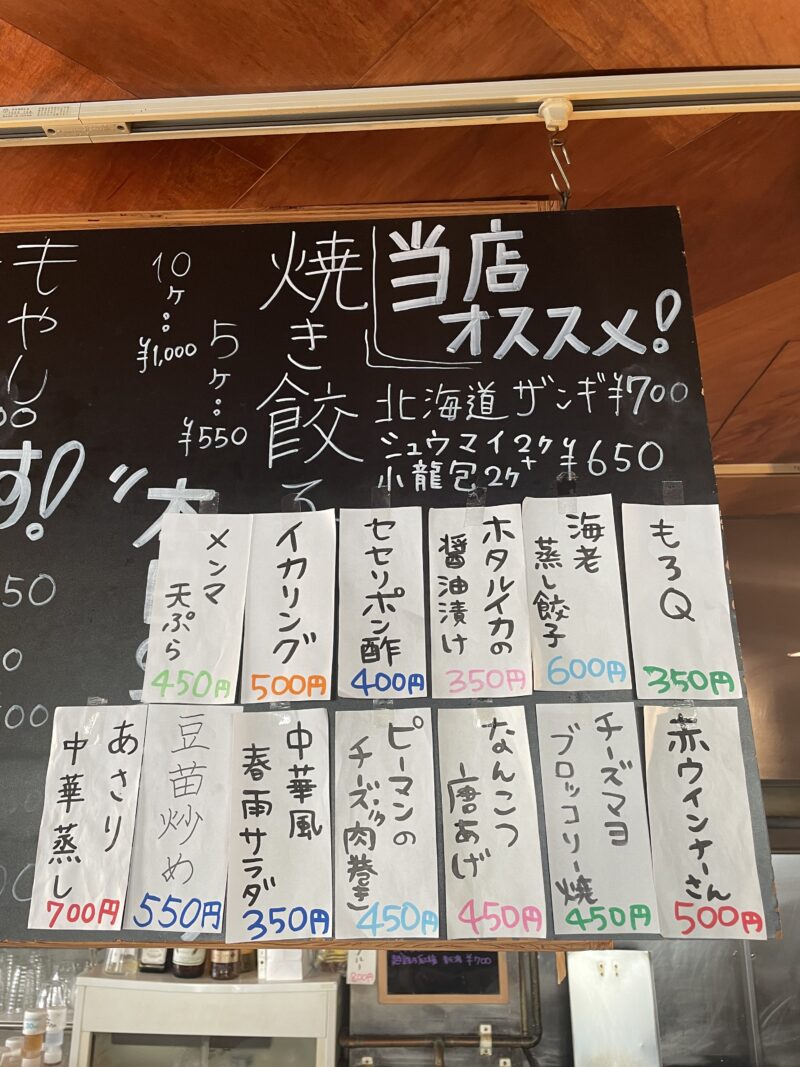 当店
オススメ!
北海道 ザンギ ¥700
シュウマイ2ヶ+
小龍包2ヶ ¥650
焼き餃子
5ヶ:
¥550
10ヶ:
¥1,000
もやし
す!
もろQ
350円
海老
蒸し餃子
600円
ホタルイカの
醤油漬け
350円
セセリポン酢
400円
イカリング
500円
メンマ
天ぷら
450円
赤ウインナーさん
500円
チーズマヨ
ブロッコリー焼
450円
なんこつ
唐あげ
450円
ピーマンの
チーズ肉巻き
450円
中華風
春雨サラダ
350円
豆苗炒め
550円
あさり
中華蒸し
700円